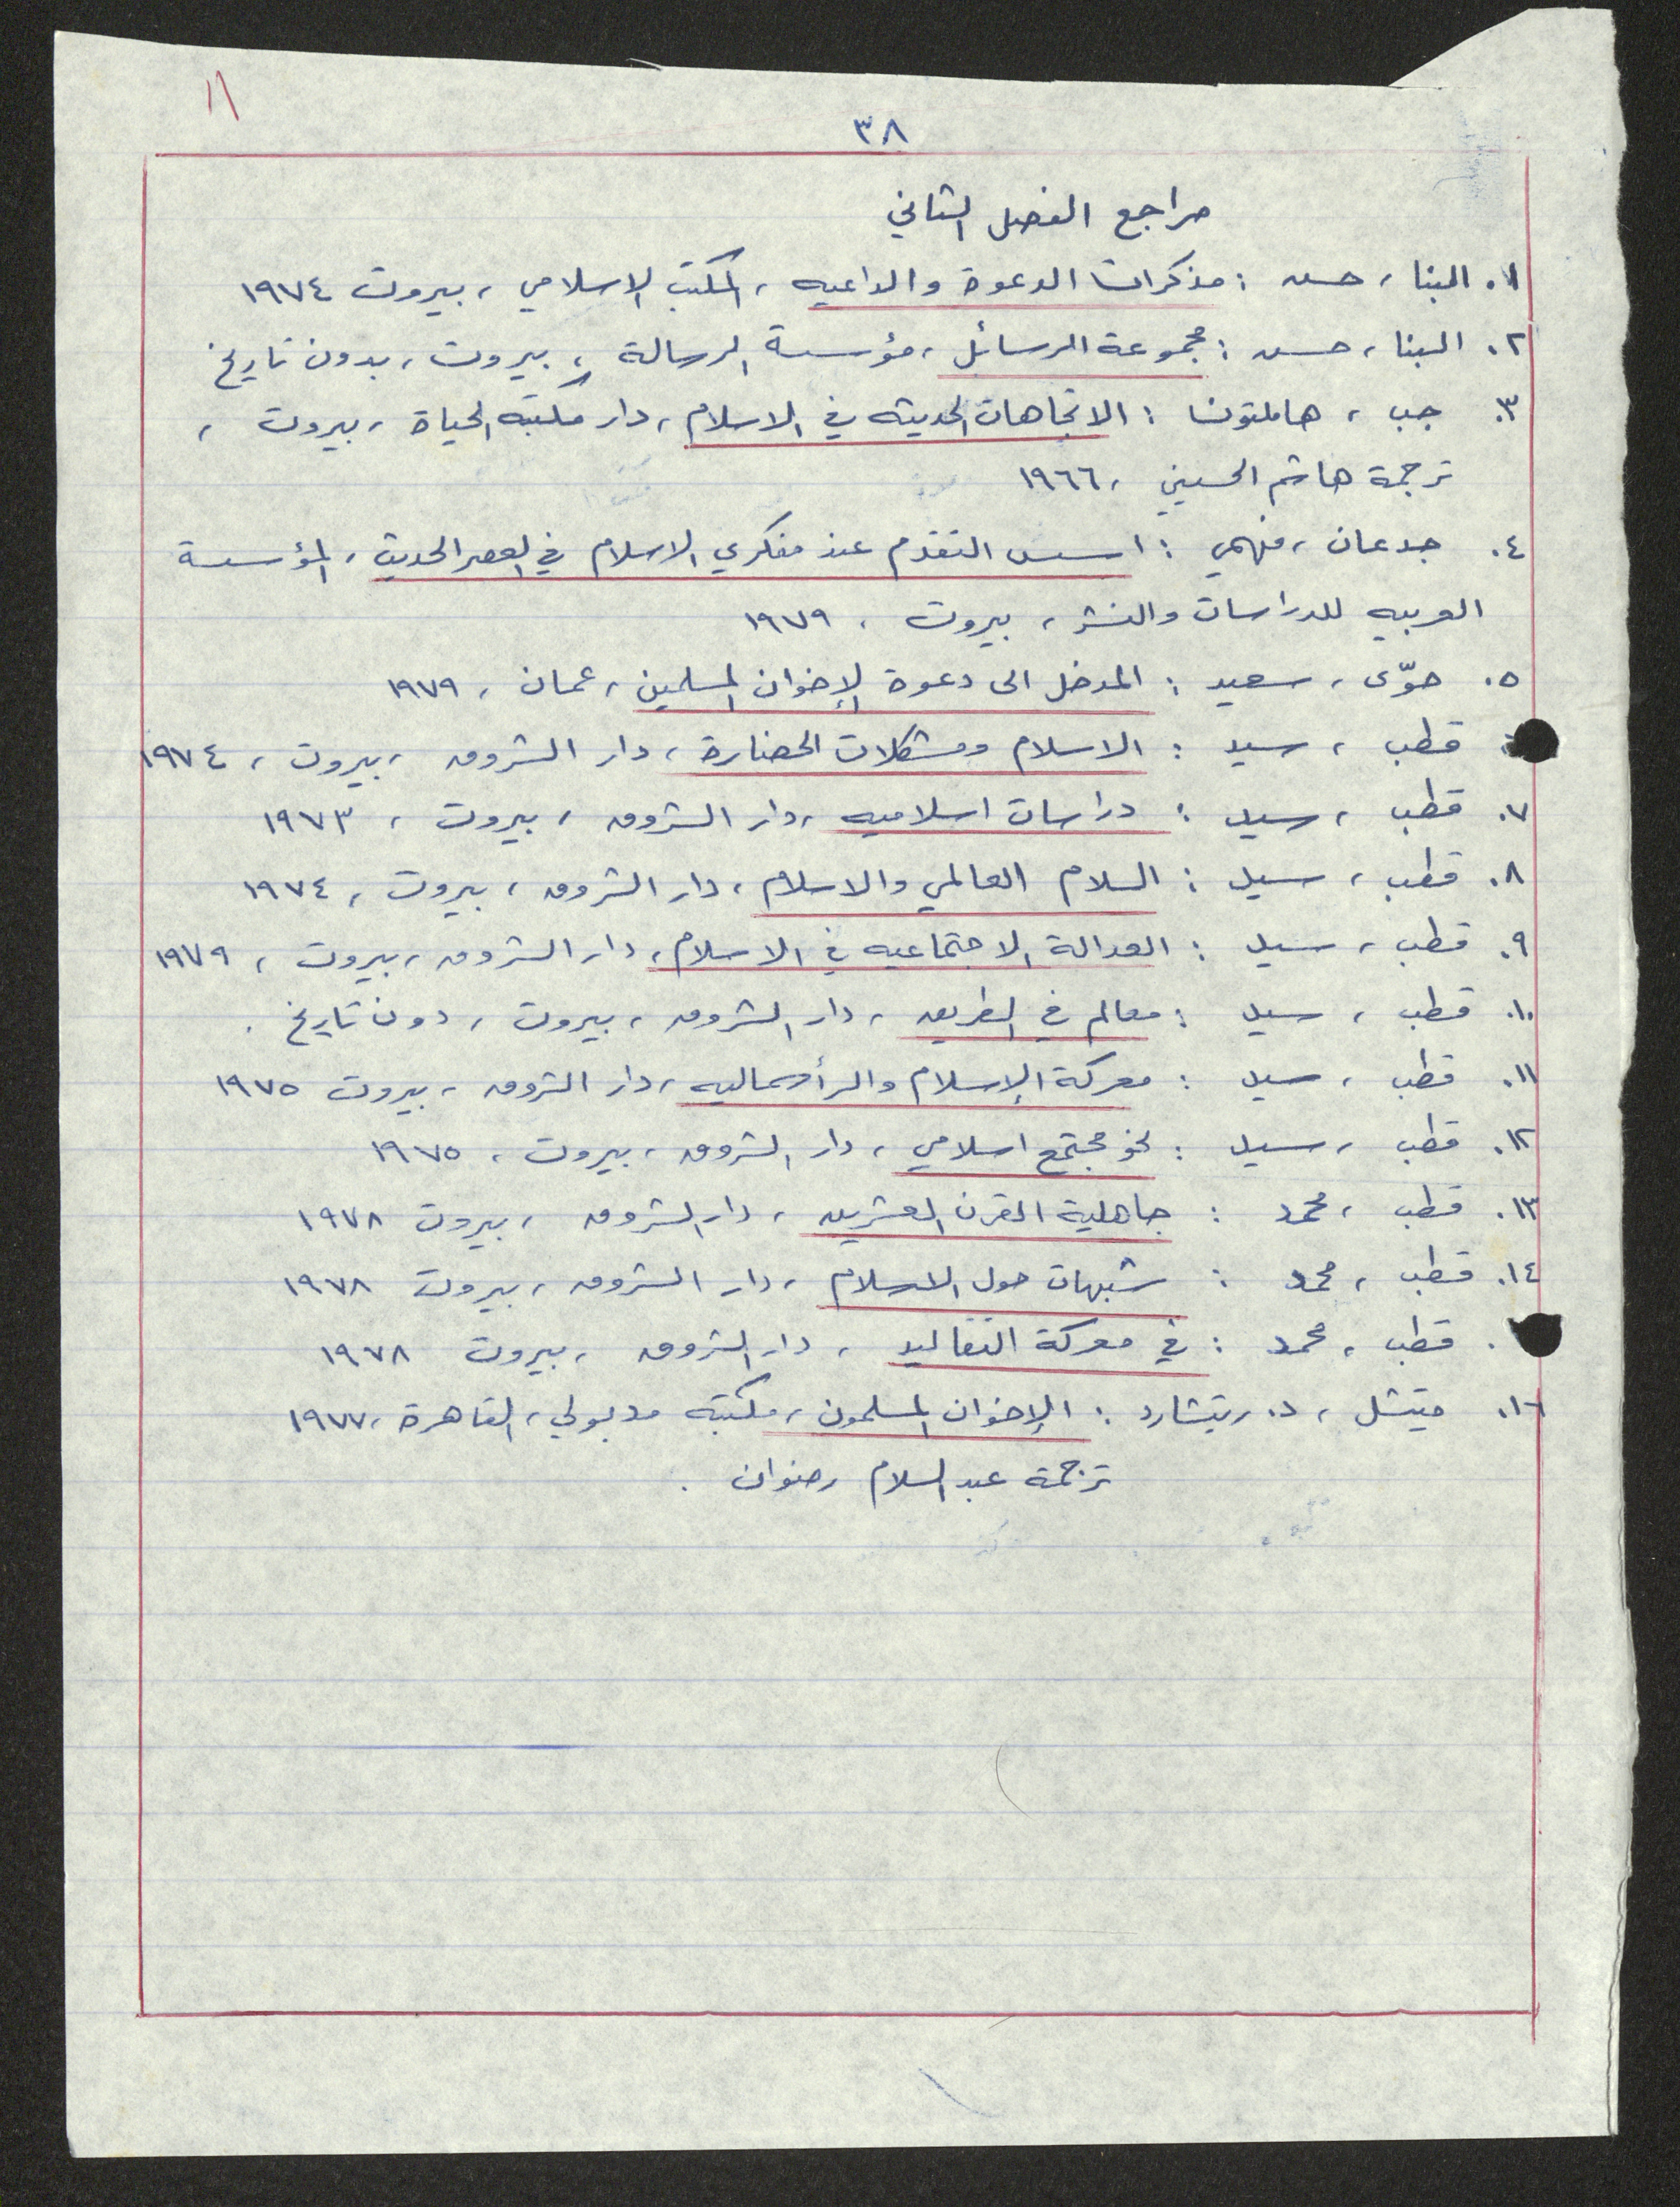 ١١
٣٨
مراجع الفصل الثاني
١. البنا، حسن : مذكرات الدعوة والداعيه، المكتب الاسلامي، بيروت ١٩٧٤
٢. البنا، حسن : مجموعة الرسائل، مؤسسة الرسالة، بيروت، بدون تاريخ
٣. جب، هاملتون : الاتجاهات الحديثه في الاسلام، دار مكتبه الحياة، بيروت،
ترجمة هاشم الحسيني، ١٩٦٦
٤. جدعان، فهمي : اسس التقدم عند مفكري الاسلام في العصر الحديث، المؤسسة
العربيه للدراسات والنشر، بيروت، ١٩٧٩
٥. حوّى، سعيد : المدخل الى دعوة الإخوان المسلمين، عمان، ١٩٧٩
قطب، سيد : الاسلام ومشكلات الحضارة، دار الشروق، بيروت، ١٩٧٤
٧. قطب، سيد : دراسات اسلاميه، دار الشروق، بيروت، ١٩٧٣
٨. قطب، سيد : السلام العالمي والاسلام، دار الشروق، بيروت، ١٩٧٤
٩. قطب، سيد : العدالة الاجتماعيه في الاسلام، دار الشروق، بيروت، ١٩٧٩
١٠. قطب، سيد : معالم في الطريق، دار الشروق، بيروت، دون تاريخ.
١١. قطب، سيد : معركة الإسلام والرأسماليه، دار الشروق، بيروت ١٩٧٥
١٢. قطب، سيد : نحو مجتمع اسلامي، دار الشروق، بيروت، ١٩٧٥
١٣. قطب، محمد : جاهلية القرن العشرين، دار الشروق، بيروت ١٩٧٨
١٤. قطب، محمد : شبهات حول الاسلام، دار الشروق، بيروت ١٩٧٨
. قطب، محمد : في معركة التقاليد، دار الشروق، بيروت ١٩٧٨
١٦. ميتشل، د. ريتشارد : الإخوان المسلمون، مكتبه مدبولي، القاهرة، ١٩٧٧
ترجمة عبد السلام رضوان.